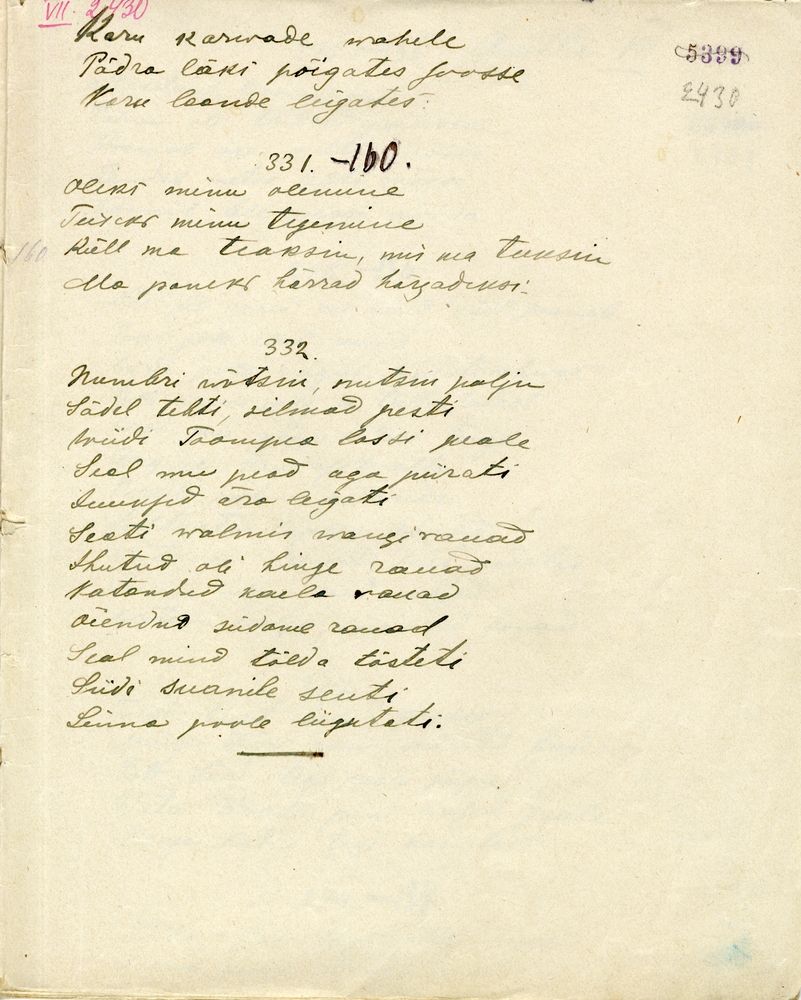 VII. 2430
Karu karwade wahele
5399
Põdra läks põigates soosse
2430
Karu laande liigates.
331. -160.
Oleks minu olemine
Teiseks minu tegemine
160 Küll ma teaksin, mis ma teeksin
Ma paneks härrad härgadeksi.
332.
Numbri wõtsin, nutsin palju
Sõdel tehti, silmad pesti
Wiidi Toompea lossi peale
Seal mu pead aga piirati
Juuksed ära leigati
Seati walmis wangi rauad
Ihutud oli hinge rauad
Katandud kaela rauad
Õiendud südame rauad
Seal mind tõlda tõsteti
Siidi suanile seuti
Sinna poole liigutati.